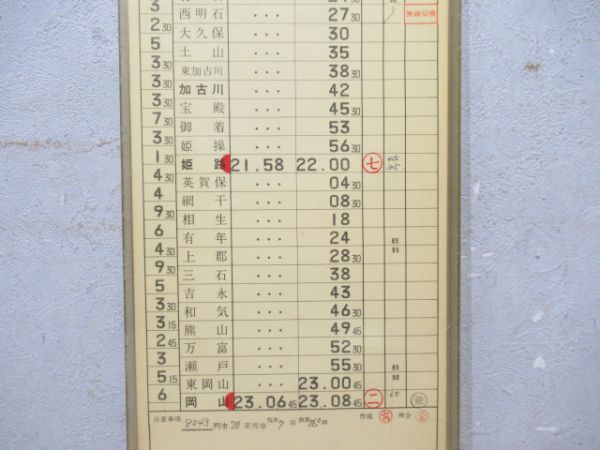 3 西明石 ... 27 30 無線切換
2 30 大久保 ... 30
土山 ... 35
3 30 東加古川 ... 38 30
3 30 加古川 ... 42
3 30 宝殿 ... 45 30
御着 ... 53
姫操 ... 56 30
1 30 姫路 21.58 22.00 七
4 30 英賀保 ... 04 30
4 網干 ... 08 30
9 30 相生 ... 18
6 有年 ... 24 85
4 30 上郡 ... 28 30 85
9 30 三石 ... 38
5 吉永 ... 43
3 30 和気 ... 46 30
3 15 熊山 ... 49 45
2 45 万富 ... 52 30
3 瀬戸 ... 55 30 85
5 15 東岡山 ... 23.00 45 90
6 岡山 23.06 45 23.08 45 二 60 乗
注意事項 8043 列車 20 作成 照合